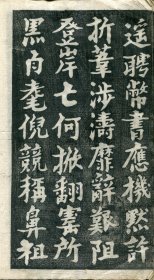 聘幣書應機默許
折葦涉濤靡辭艱阻
登岸亡何掀翻所
黑白耄倪競稱鼻祖